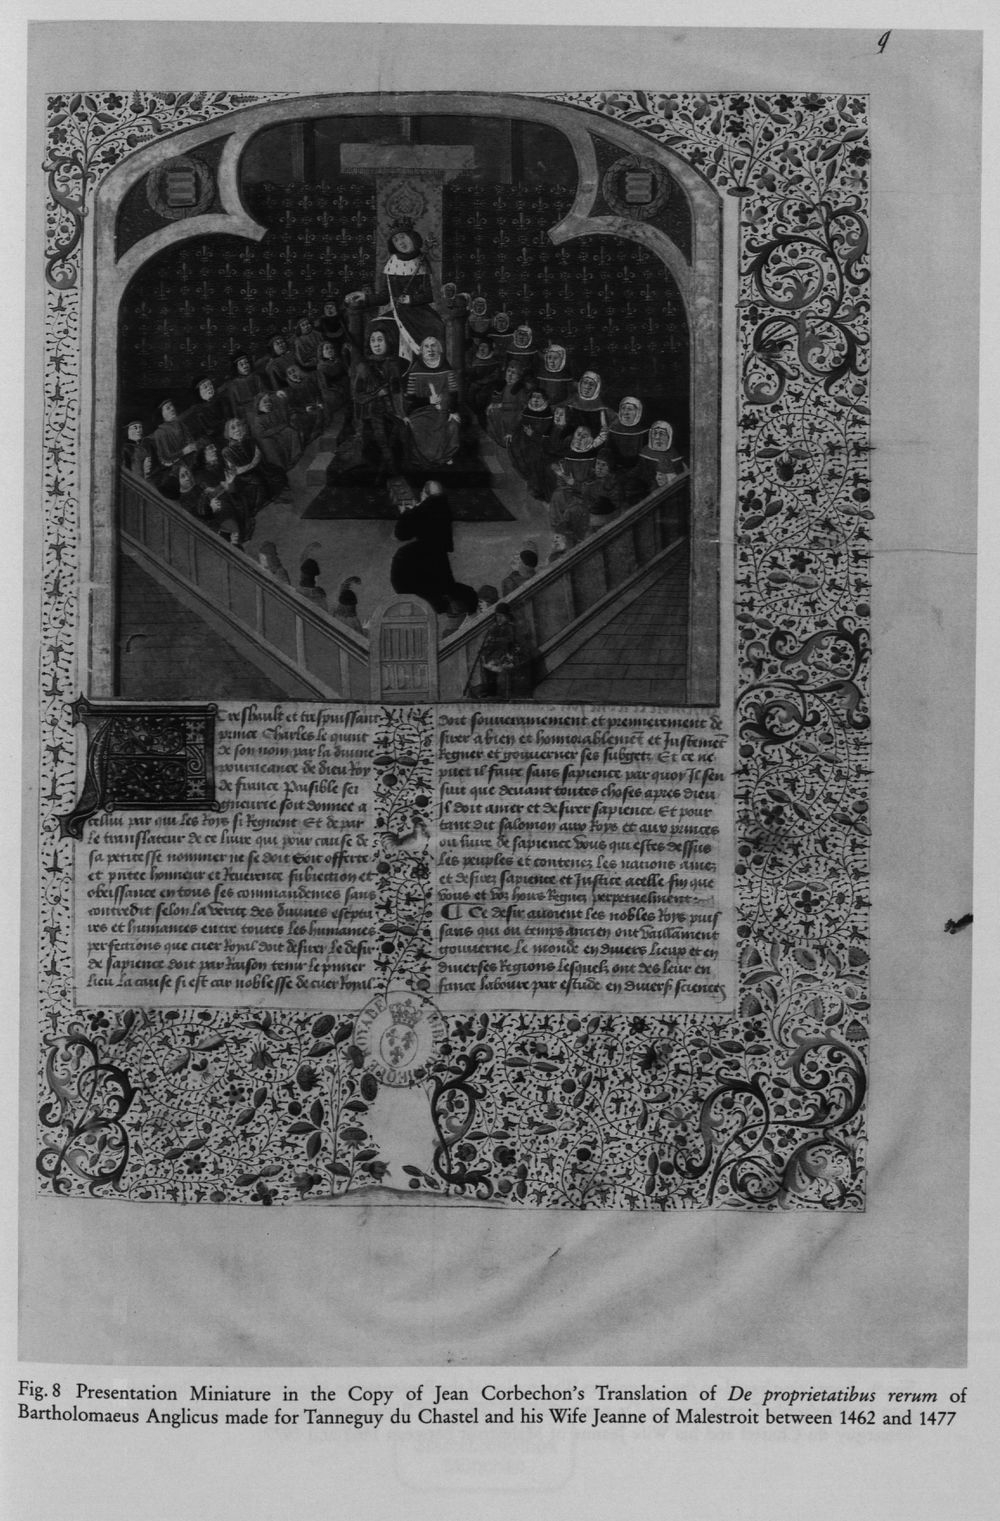 9
Treshault et trespuissant
prince Charles le quint
de son nom par la diuine
pourueance de dieu Roy
de france Paisible sei
gneurie soit donnee a
cellui par qui les Roys si Regnent Et de par
le translateur de ce liure qui pour cause de
sa petitesse nommer ne se doit Soit offerte
et pñtee honneur et Reuerence subiection et
obeissance en tous ses commandemēs sans
contredit selon la verite des diuines esc̄ptu
res et humaines entre toutes les humaines
perfections que cuer Royal doit desirer le desir
de sapience doit par Raison tenir le p̄mier
lieu La cause si est car noblesse de cuer Royal
doit souuerainement et premierement de
sirer a bien et honnorablemēt et Justemēt
Regner et gouuerner ses subgetz Et ce ne
puet il faire sans sapience par quoy Il sen
suit que deuant toutes choses apres dieu
Il doit amer et desirer sapience Et pour
tant dit salomon aux Roys et aux princes
ou liure de sapience Vous qui estes dessus
les peuples et contenez les nacions amez
et desirez sapience et Justice a celle fin que
vous et voz hoirs Regnez perpetuelment
¶ Ce desir auoient les nobles Roys puis
sans qui ou temps ancien ont vaillament
gouuerne le monde en diuers lieux et en
diuerses Regions Lesquelz ont des leur en
fance laboure par estude en diuers sciences
Fig. 8 Presentation Miniature in the Copy of Jean Corbechon's Translation of De proprietatibus rerum of
Bartholomaeus Anglicus made for Tanneguy du Chastel and his Wife Jeanne of Malestroit between 1462 and 1477